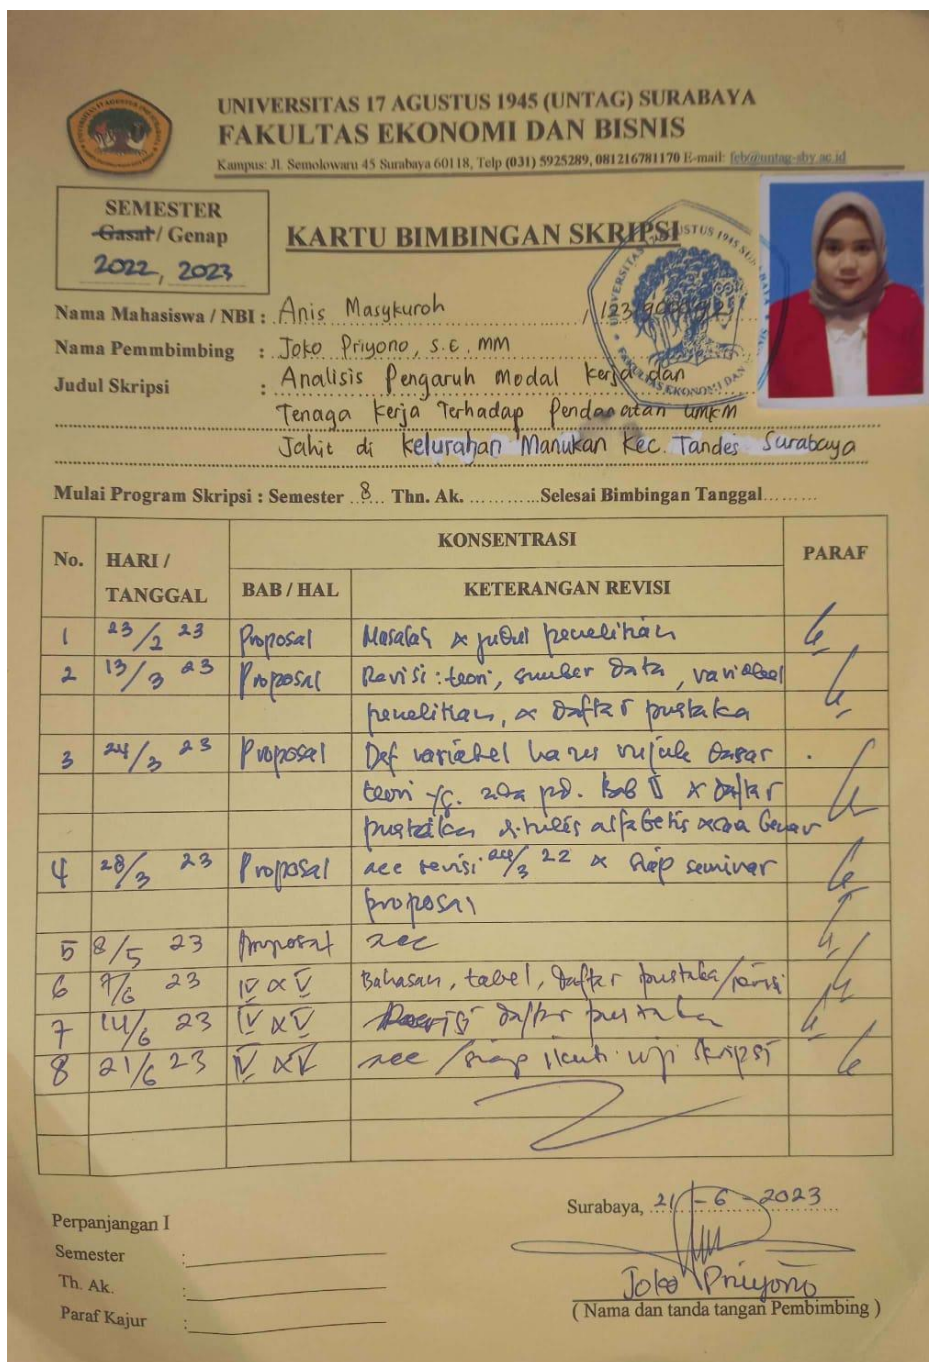 UNIVERSITAS 17 AGUSTUS 1945 (UNTAG) SURABAYA
FAKULTAS EKONOMI DAN BISNIS
Kampus: Jl. Semolowaru 45 Surabaya 60118, Telp (031) 5925289, 081216781170 E-mail: feb@untag-sby.ac.id
SEMESTER
Gasal / Genap
2022, 2023
KARTU BIMBINGAN SKRIPSI
Nama Mahasiswa / NBI : Anis Masykuroh
Nama Pemmbimbing : Joko Priyono, S.E, MM
Judul Skripsi : Analisis Pengaruh Modal Kerja dan
Tenaga Kerja Terhadap Pendapatan UMKM
Jahit di Kelurahan Manukan Kec. Tandes Surabaya
Mulai Program Skripsi : Semester 8 Thn. Ak. ............Selesai Bimbingan Tanggal.........
No. HARI / TANGGAL KONSENTRASI PARAF
BAB / HAL KETERANGAN REVISI
1 23/2 23 Proposal Masalah & judul penelitian
2 13/3 23 Proposal Revisi : teori, sumber data, variabel
penelitian, & daftar pustaka
3 24/3 23 Proposal Def variabel harus rujuk dasar
teori yg. ada pd. Bab II & daftar
pustaka ditulis alfabetis
4 28/3 23 Proposal acc revisi 24/3 22 & siap seminar
proposal
5 8/5 23 Proposal acc
6 7/6 23 IV & V Bahasan, tabel, daftar pustaka/revisi
7 14/6 23 IV & V Revisi daftar pustaka
8 21/6 23 IV & V acc / siap ikuti uji skripsi
Surabaya, 21-6-2023
Perpanjangan I
Semester :
Th. Ak. :
Paraf Kajur :
Joko Priyono
( Nama dan tanda tangan Pembimbing )